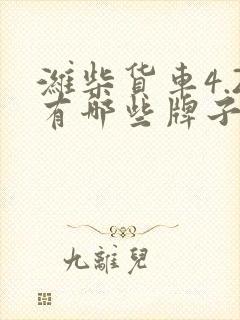 潍柴货车4.2
有哪些牌子
九離兒